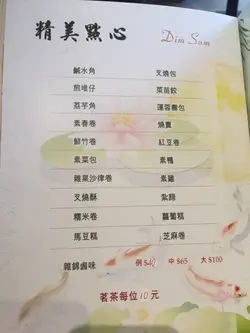 精美點心 Dim Sum
鹹水角 叉燒包
煎堆仔 菜苗餃
荔芋角 蓮蓉壽包
素春卷 燒賣
鮮竹卷 紅豆卷
素菜包 素鴨
雜果沙律卷 素雞
叉燒酥 紮蹄
糯米卷 蘿蔔糕
馬豆糕 芝麻卷
雜錦鹵味 例 $40 中 $65 大 $100
茗茶每位10元